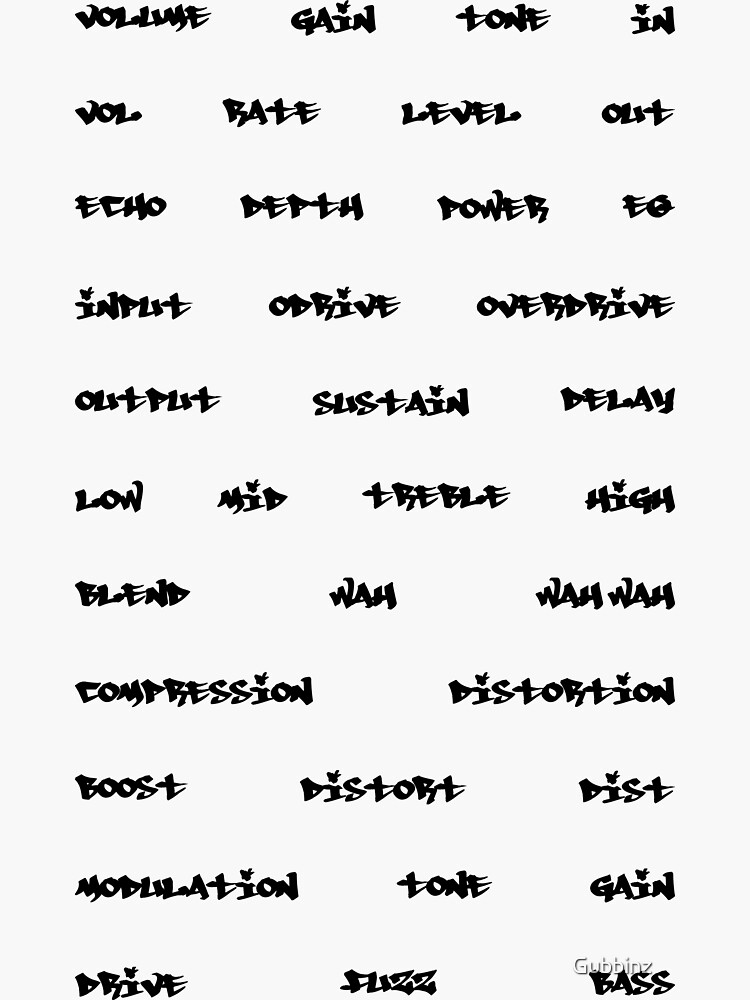 VOLUME GAIN TONE IN
VOL RATE LEVEL OUT
ECHO DEPTH POWER EQ
INPUT ODRIVE OVERDRIVE
OUTPUT SUSTAIN DELAY
LOW MID TREBLE HIGH
BLEND WAH WAH WAH
COMPRESSION DISTORTION
BOOST DISTORT DIST
MODULATION TONE GAIN
DRIVE FUZZ BASS
Gubbinz